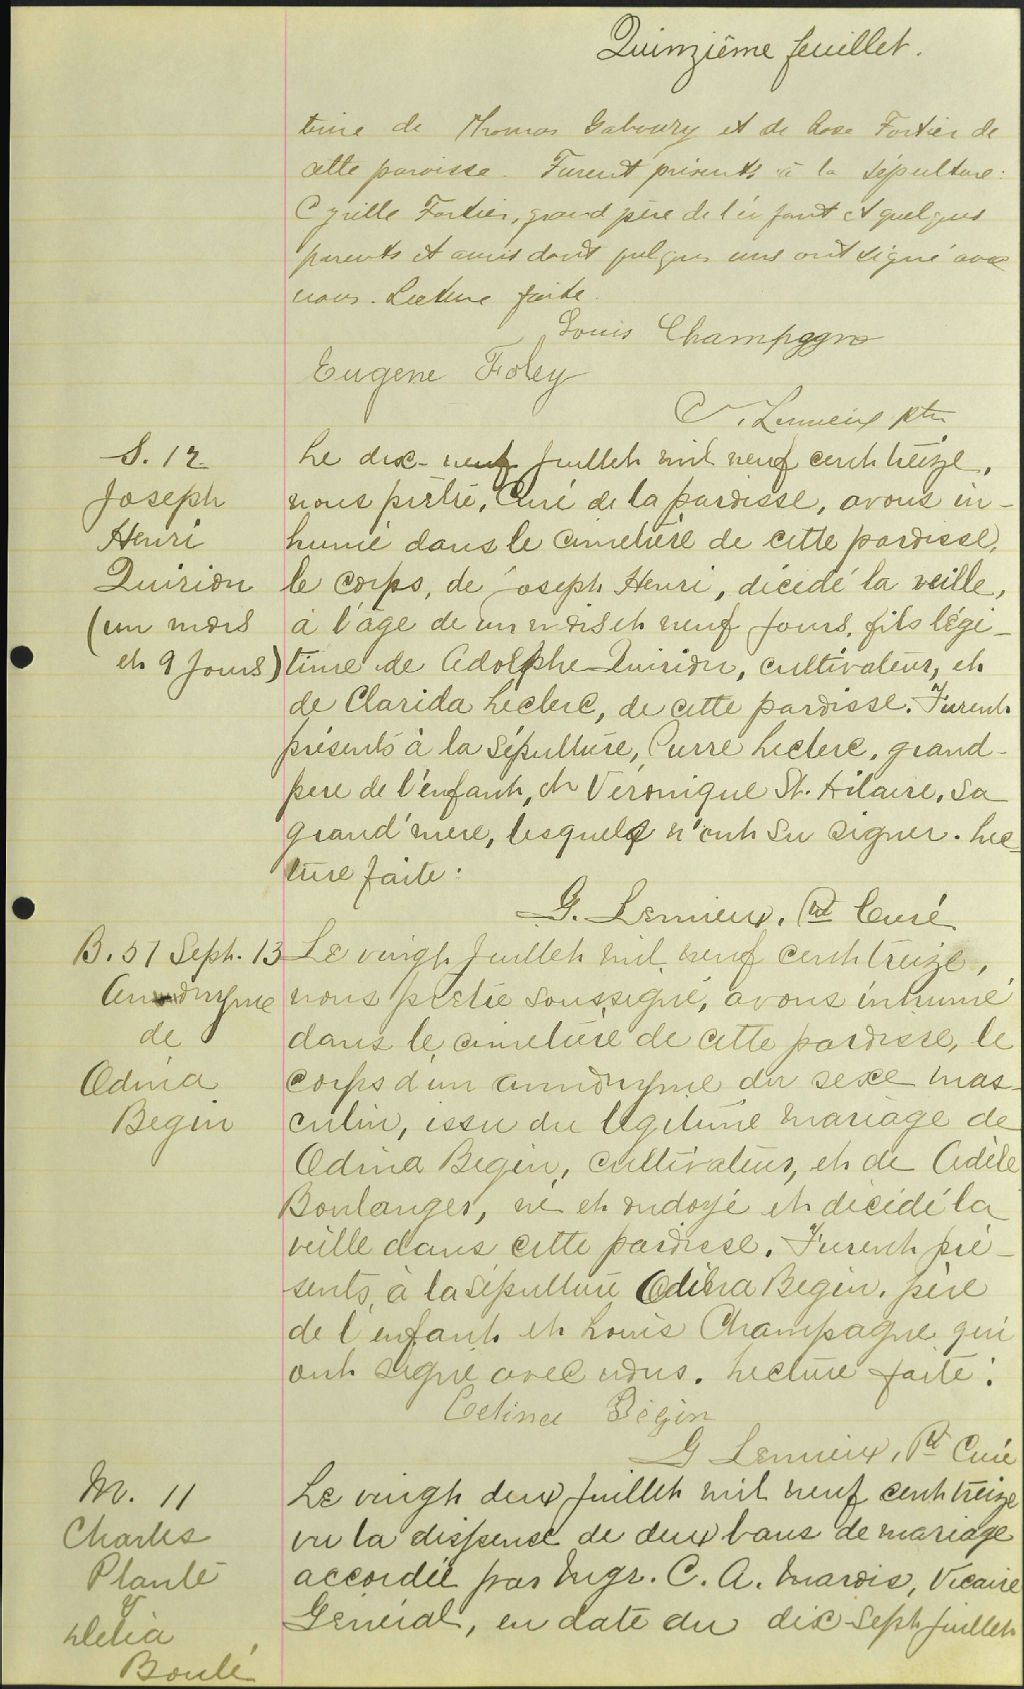 Quinzième feuillet.
time de Thomas Gaboury et de Rose Fortier de
cette paroisse. Furent présents à la sépulture:
Cyrille Fortier, grand père de l'enfant et quelques
parents et amis dont quelques uns ont signé avec
nous. Lecture faite.
Louis Champagne
Eugene Foley
Lemieux ptr.
S. 12
Joseph
Henri
Quirion
(un mois
et 9 jours)
Le dix-neuf Juillet mil neuf cent treize,
nous prêtre, Curé de la paroisse, avons in-
humé dans le cimetière de cette paroisse,
le corps, de Joseph Henri, décédé la veille,
à l'âge de un mois et neuf jours, fils légi-
time de Adolphe Quirion, cultivateur, et
de Clarida Leclerc, de cette paroisse. Furent
présents à la sépulture, Pierre Leclerc, grand-
père de l'enfant, et Véronique St. Hilaire, sa
grand'mère, lesquels n'ont su signer. Lec-
ture faite:
G. Lemieux, Ptre Curé
B. 51 Sept. 13
Anonyme
de
Odina
Begin
Le vingt Juillet mil neuf cent treize,
nous prêtre soussigné, avons inhumé
dans le cimetière de cette paroisse, le
corps d'un anonyme du sexe mas-
culin, issu du légitime mariage de
Odina Begin, cultivateur, et de Adèle
Boulanger, né et ondoyé et décédé la
veille dans cette paroisse. Furent pré-
sents, à la sépulture Odina Begin, père
de l'enfant et Louis Champagne qui
ont signé avec nous. Lecture faite:
Begin
G Lemieux, Ptre Curé
M. 11
Charles
Planté
&
Délia
Boulé
Le vingt deux Juillet mil neuf cent treize
vu la dispense de deux bans de mariage
accordée par Mgr. C. A. Marois, Vicaire
Général, en date du dix-sept juillet